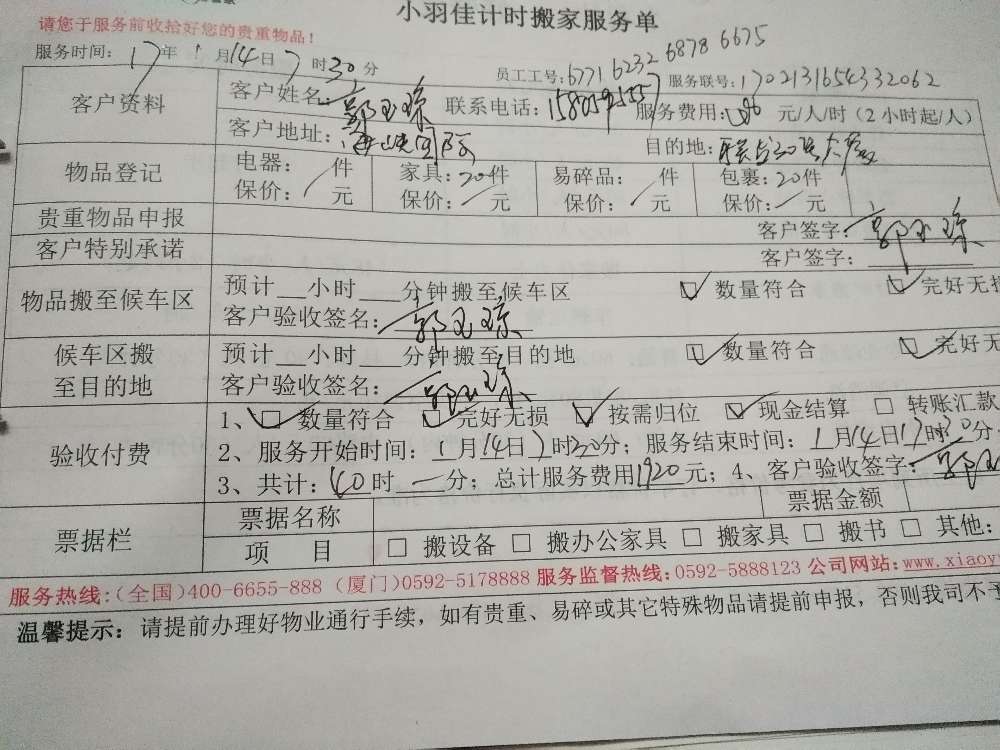 小羽佳计时搬家服务单
请您于服务前收拾好您的贵重物品！
服务时间：17年1月14日7时30分 员工工号：6771 6232 6878 6675 服务联号：1702131654332062
客户资料 客户姓名： 联系电话： 服务费用： 元/人/时（2小时起/人）
客户地址： 目的地：
物品登记 电器：/件 家具：20件 易碎品：/件 包裹：20件
保价：/元 保价：/元 保价：/元 保价：/元
贵重物品申报 客户签字：
客户特别承诺 客户签字：
物品搬至候车区 预计__小时__分钟搬至候车区 ☑ 数量符合 ☑ 完好无损
客户验收签名：
候车区搬至目的地 预计__小时__分钟搬至目的地 ☑ 数量符合 ☑ 完好无
客户验收签名：
验收付费 1、☑ 数量符合 ☑ 完好无损 ☑ 按需归位 ☑ 现金结算 □ 转账汇款
2、服务开始时间：1月14日7时30分；服务结束时间：1月14日17时30分；
3、共计：10时一分；总计服务费用1920元；4、客户验收签字：
票据栏 票据名称 票据金额
项 目 □ 搬设备 □ 搬办公家具 □ 搬家具 □ 搬书 □ 其他：
服务热线：（全国）400-6655-888（厦门）0592-5178888 服务监督热线：0592-5888123 公司网站：www.xiaoy
温馨提示：请提前办理好物业通行手续，如有贵重、易碎或其它特殊物品请提前申报，否则我司不予